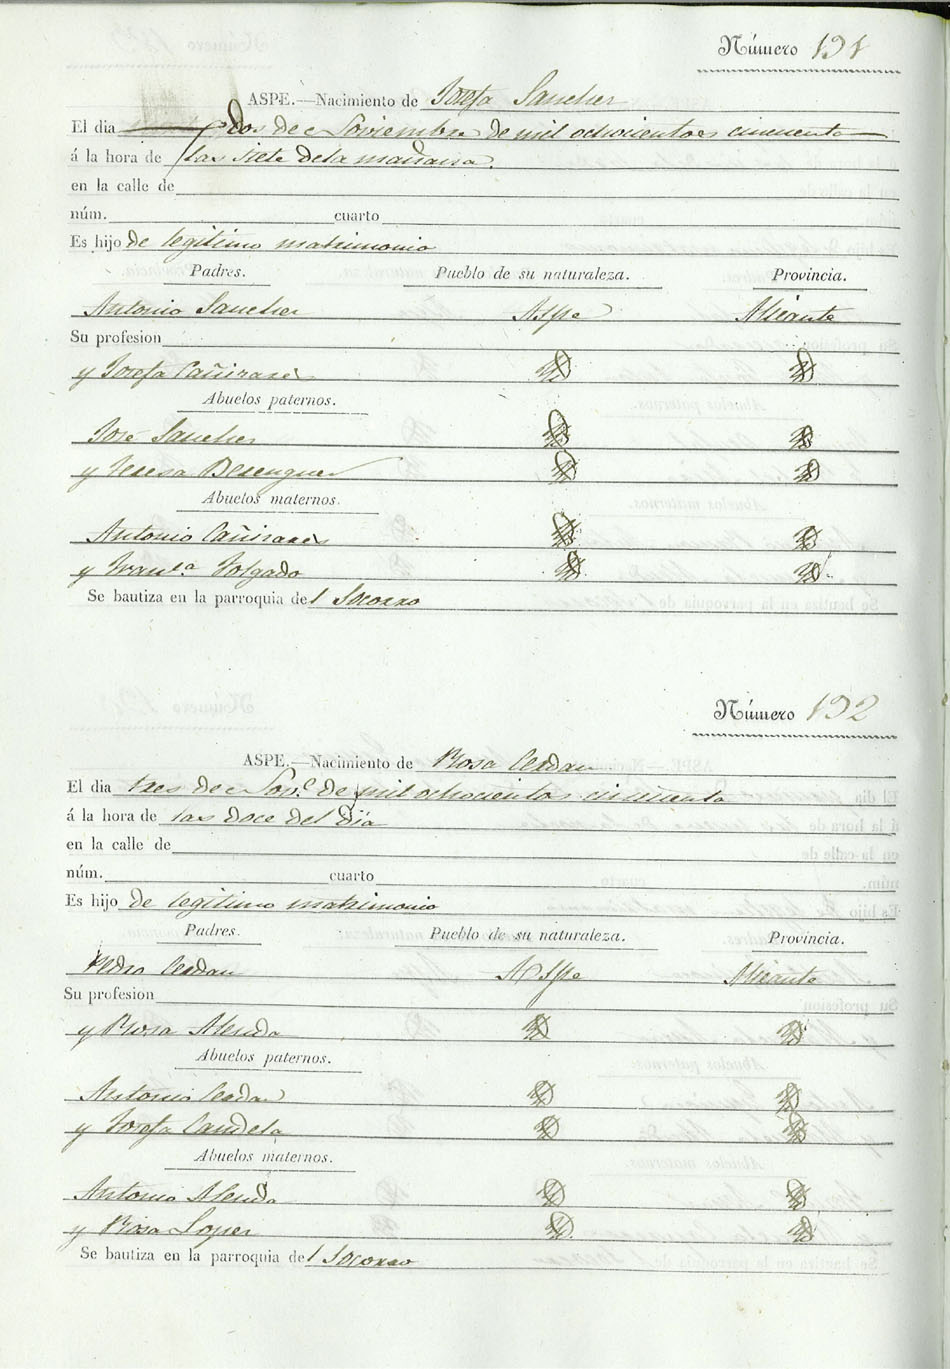 Número 191
ASPE.—Nacimiento de Josefa Sanchez
El dia dos de Noviembre de mil ochocientos cincuenta
á la hora de las siete de la mañana.
en la calle de
núm. cuarto
Es hijo de legitimo matrimonio
Padres. Pueblo de su naturaleza. Provincia.
Antonio Sanchez Aspe Alicante
Su profesion
y Josefa Cañizares
Abuelos paternos.
José Sanchez
y Teresa Berenguer
Abuelos maternos.
Antonio Cañizares
y Fran.ca Folgado
Se bautiza en la parroquia del Socorro
Número 192
ASPE.—Nacimiento de Rosa Cerdan
El dia tres de de mil ochocientos cincuenta
á la hora de las doce del dia
en la calle de
núm. cuarto
Es hijo de legitimo matrimonio
Padres. Pueblo de su naturaleza. Provincia.
Pedro Cerdan Aspe Alicante
Su profesion
y Rosa Alenda
Abuelos paternos.
Antonio Cerdan
y Josefa Candela
Abuelos maternos.
Antonio Alenda
y Rosa Lopez
Se bautiza en la parroquia del Socorro